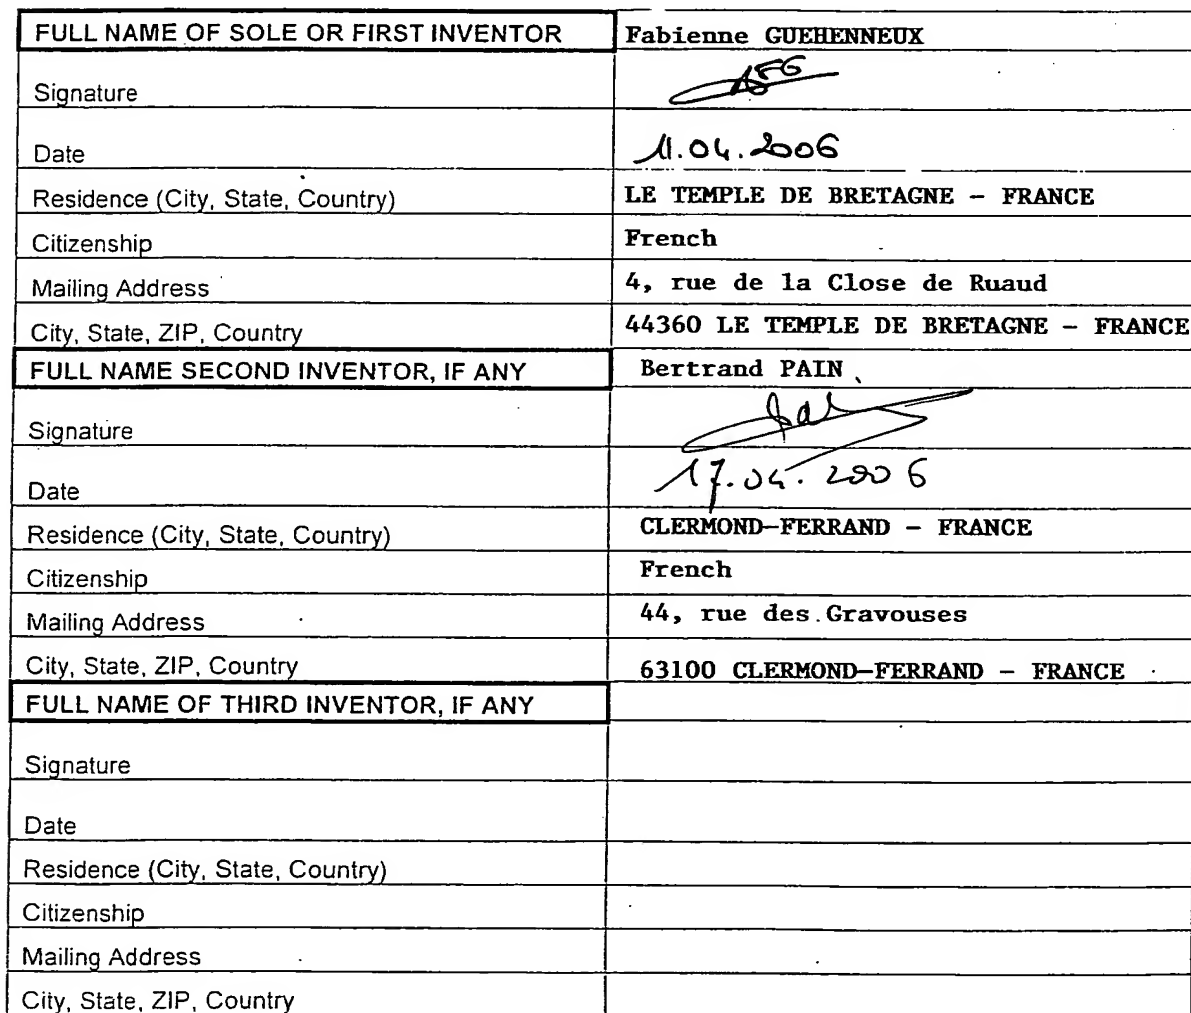 FULL NAME OF SOLE OR FIRST INVENTOR Fabienne GUEHENNEUX
Signature
Date 11.04.2006
Residence (City, State, Country) LE TEMPLE DE BRETAGNE - FRANCE
Citizenship French
Mailing Address 4, rue de la Close de Ruaud
City, State, ZIP, Country 44360 LE TEMPLE DE BRETAGNE - FRANCE
FULL NAME SECOND INVENTOR, IF ANY Bertrand PAIN
Signature
Date 17.04.2006
Residence (City, State, Country) CLERMOND-FERRAND - FRANCE
Citizenship French
Mailing Address 44, rue des Gravouses
City, State, ZIP, Country 63100 CLERMOND-FERRAND - FRANCE
FULL NAME OF THIRD INVENTOR, IF ANY
Signature
Date
Residence (City, State, Country)
Citizenship
Mailing Address
City, State, ZIP, Country